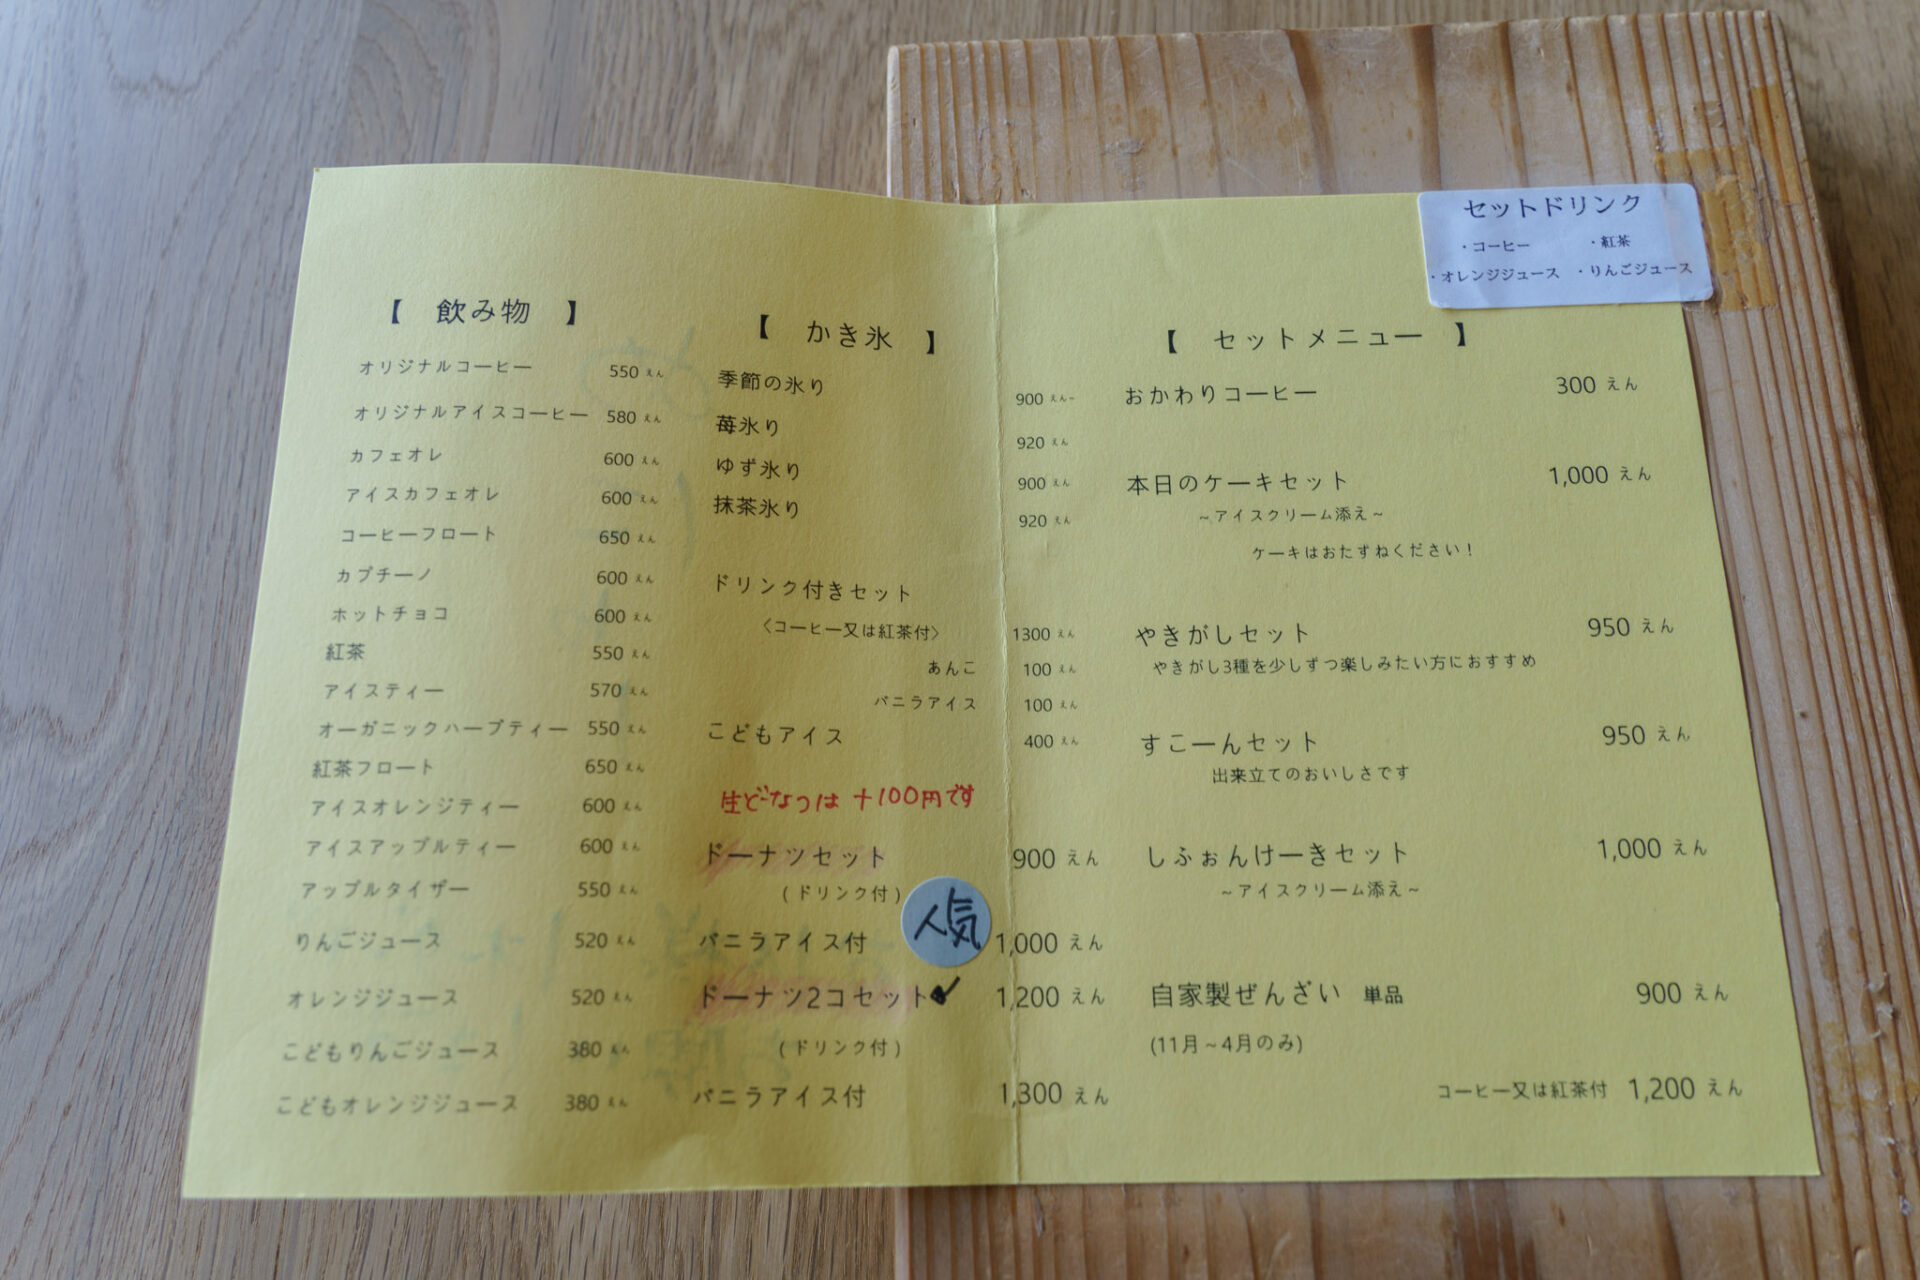 セットドリンク
・コーヒー ・紅茶
・オレンジジュース ・りんごジュース
【 飲み物 】
オリジナルコーヒー 550 えん
オリジナルアイスコーヒー 580 えん
カフェオレ 600 えん
アイスカフェオレ 600 えん
コーヒーフロート 650 えん
カプチーノ 600 えん
ホットチョコ 600 えん
紅茶 550 えん
アイスティー 570 えん
オーガニックハーブティー 550 えん
紅茶フロート 650 えん
アイスオレンジティー 600 えん
アイスアップルティー 600 えん
アップルタイザー 550 えん
りんごジュース 520 えん
オレンジジュース 520 えん
こどもりんごジュース 380 えん
こどもオレンジジュース 380 えん
【 かき氷 】
季節の氷り 900 えん~
苺氷り 920 えん
ゆず氷り 900 えん
抹茶氷り 920 えん
ドリンク付きセット
〈コーヒー又は紅茶付〉 1300 えん
あんこ 100 えん
バニラアイス 100 えん
こどもアイス 400 えん
生どーなつは +100円です
ドーナツセット 900 えん
(ドリンク付)
人気
バニラアイス付 1,000 えん
ドーナツ2コセット✓ 1,200 えん
(ドリンク付)
バニラアイス付 1,300 えん
【 セットメニュー 】
おかわりコーヒー 300 えん
本日のケーキセット 1,000 えん
~アイスクリーム添え~
ケーキはおたずねください!
やきがしセット 950 えん
やきがし3種を少しずつ楽しみたい方におすすめ
すこーんセット 950 えん
出来立てのおいしさです
しふぉんけーきセット 1,000 えん
~アイスクリーム添え~
自家製ぜんざい 単品 900 えん
(11月~4月のみ)
コーヒー又は紅茶付 1,200 えん